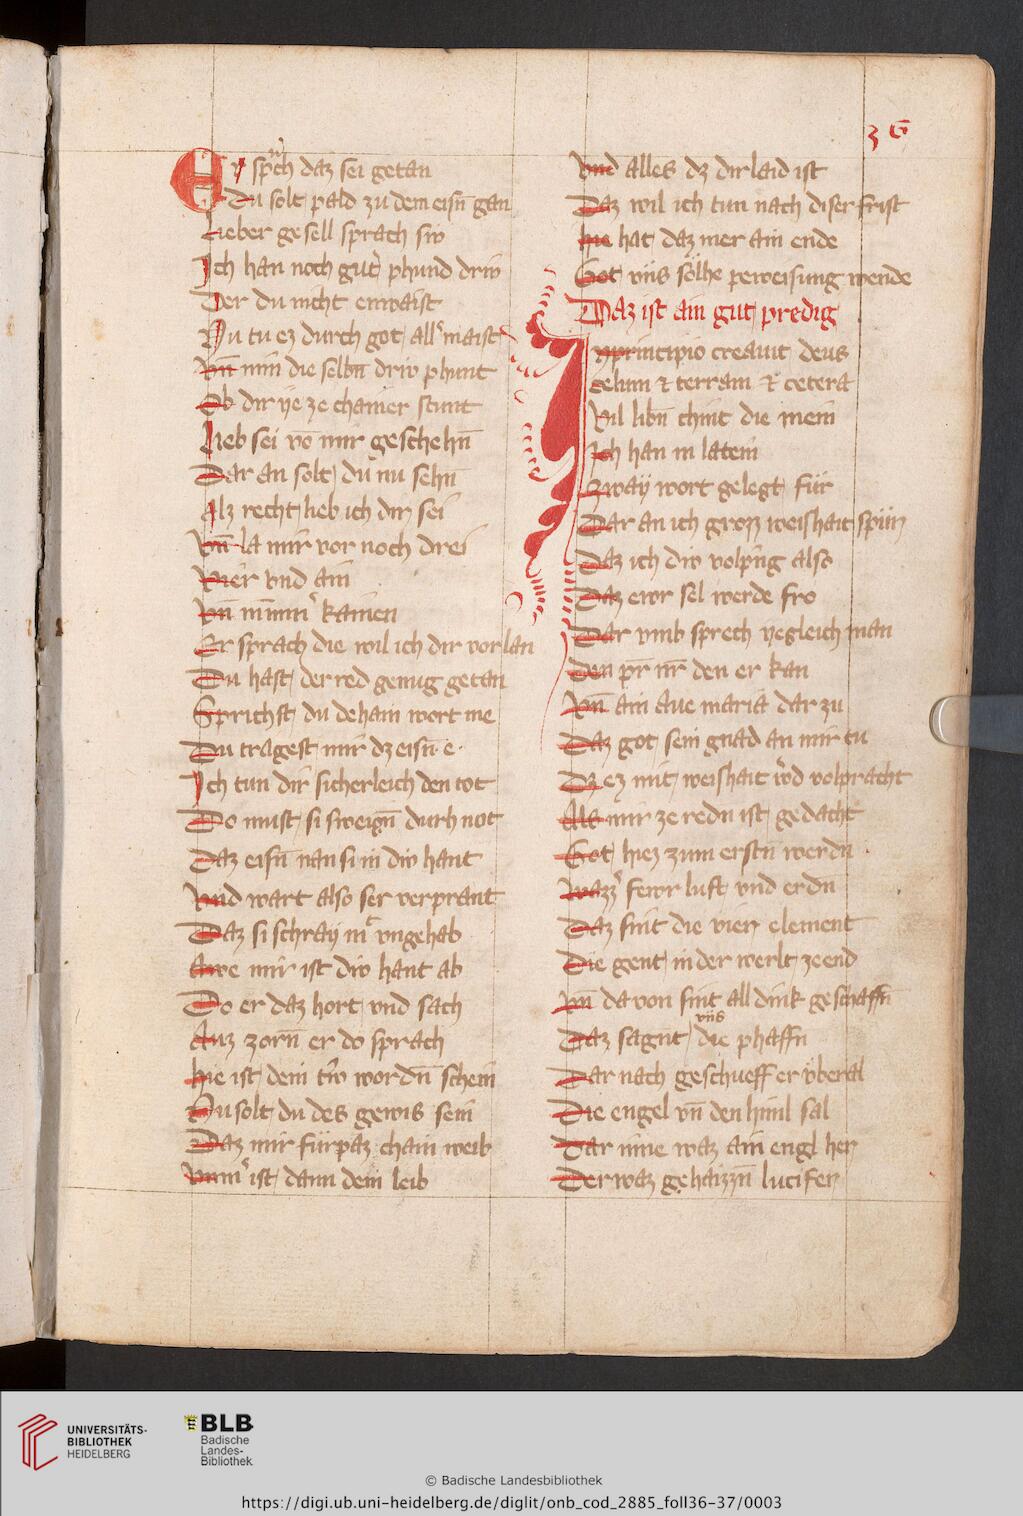 36
Er sprach daz sei getan
Du solt pald zu dem eisn̄ gan
Lieber gesell sprach siv
Ich han noch gut phund driv
Der du nicht enwaist
Nu tu ez durch got all maist
Vn̄ nim die selbn̄ driv phunt
Ob dir ye ze chainer stunt
Lieb sei vō mir geschehn̄
Dar an solt du nu sehn̄
Alz recht lieb ich dir sei
Vn̄ la mir vor noch drei
Vier vnd ain
Vn̄ nim̄m̄ kainen
Er sprach die wil ich dir vor lan
Du hast der red genug getan
Sprichst du dehain wort me
Du tragest mir dz eisn̄ e
Ich tun dir sicherleich den tot
Do must si sweign̄ durh not
Daz eisn̄ nan si in div hant
Vnd wart also ser verprant
Daz si schray mit vngehab
Awe mir ist div hant ab
Do er daz hort vnd sach
Auz zorn̄ er do sprach
Hie ist dein triv wordn̄ schein
Nu solt du des gewis sein
Daz mir fürpaz chain weib
Vnm̄ ist dann dein leib
Vnd alles dz dir laid ist
Daz wil ich tun nach diser frist
Hie hat daz mer ain ende
Got vns sölhe peweisung wende
Daz ist ain gut predig
In principio creauit deus
celum & terram & cetera
Vil libn̄ chint die mein
Ich han in latein
Zway wort gelegt für
Dar an ich groz weishait spür
Daz ich div volpring also
Daz ewr sel werde fro
Dar vmb sprech yegleich man
Den pr̄ nr̄ den er kan
Vn̄ ain aue maria dar zu
Daz got sein gnad an mir tu
Dz ez mit weishait werd volpracht
Als mir ze redn ist gedacht
Got hiez zum erstn̄ werdn
Wazzer fewr luft vnd erdn
Daz sint die vier element
Die gent in der werlt zeend
Vn̄ da von sint all dink geschaffn̄
Daz sagnt vns die phaffn
Dar nach geschueff er vberal
Die engel vn̄ den himl sal
Dar inne waz ain engl her
Der waz gehaizzn̄ lucifer
UNIVERSITÄTS-
BIBLIOTHEK
HEIDELBERG
BLB
Badische
Landes-
Bibliothek
© Badische Landesbibliothek
https://digi.ub.uni-heidelberg.de/diglit/onb_cod_2885_foll36-37/0003